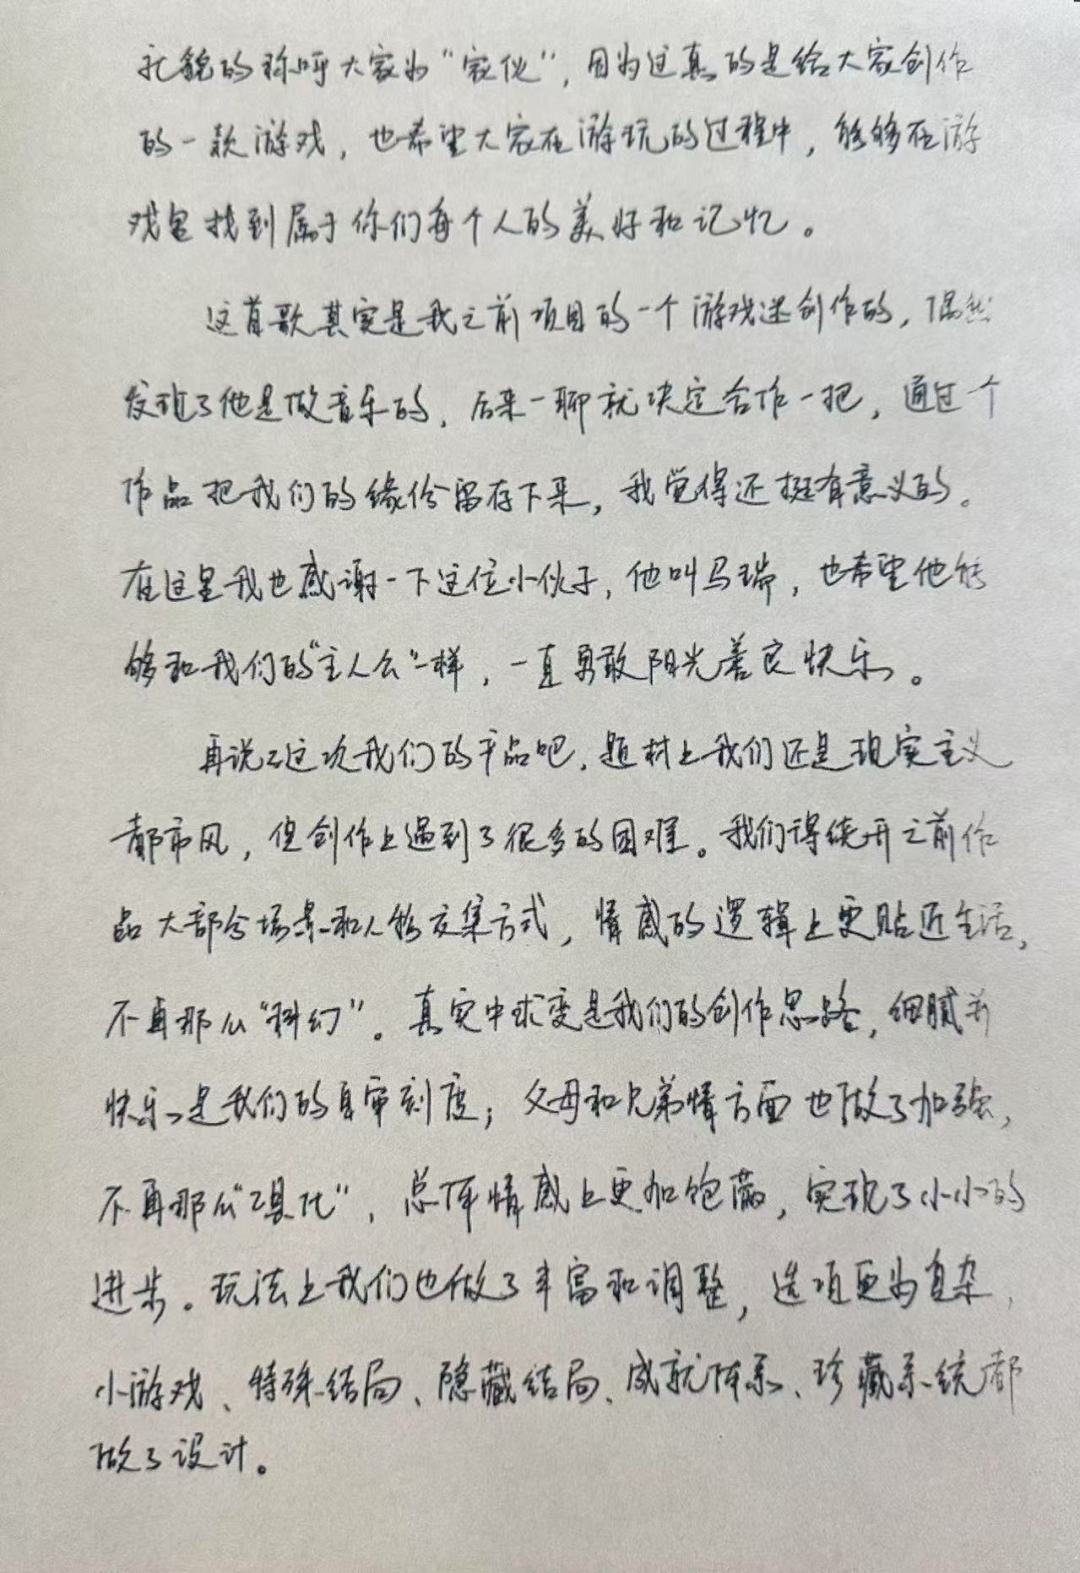 礼貌的称呼大家为“家伙”，因为这真的是给大家创作
的一款游戏，也希望大家在游玩的过程中，能够在游
戏里找到属于你们每个人的美好和记忆。
这首歌其实是我之前项目的一个游戏迷创作的，偶然
发现了他是做音乐的，后来一聊就决定合作一把，通过个
作品把我们的缘份留存下来，我觉得还挺有意义的。
在这里我也感谢一下这位小伙子，他叫马瑞，也希望他能
够和我们的“主人公”一样，一直勇敢阳光善良快乐。
再说这次我们的产品吧，题材上我们还是现实主义
都市风，但创作上遇到了很多的困难。我们得绕开之前作
品大部分场景和人物交集方式，情感的逻辑上更贴近生活，
不再那么“科幻”。真实中求变是我们的创作思路，细腻并
快乐是我们的自审刻度；父母和兄弟情方面也做了加强，
不再那么“工具化”，总体情感上更加饱满，实现了小小的
进步。玩法上我们也做了丰富和调整，选项更为复杂，
小游戏、特殊结局、隐藏结局、成就体系、珍藏系统都
做了设计。